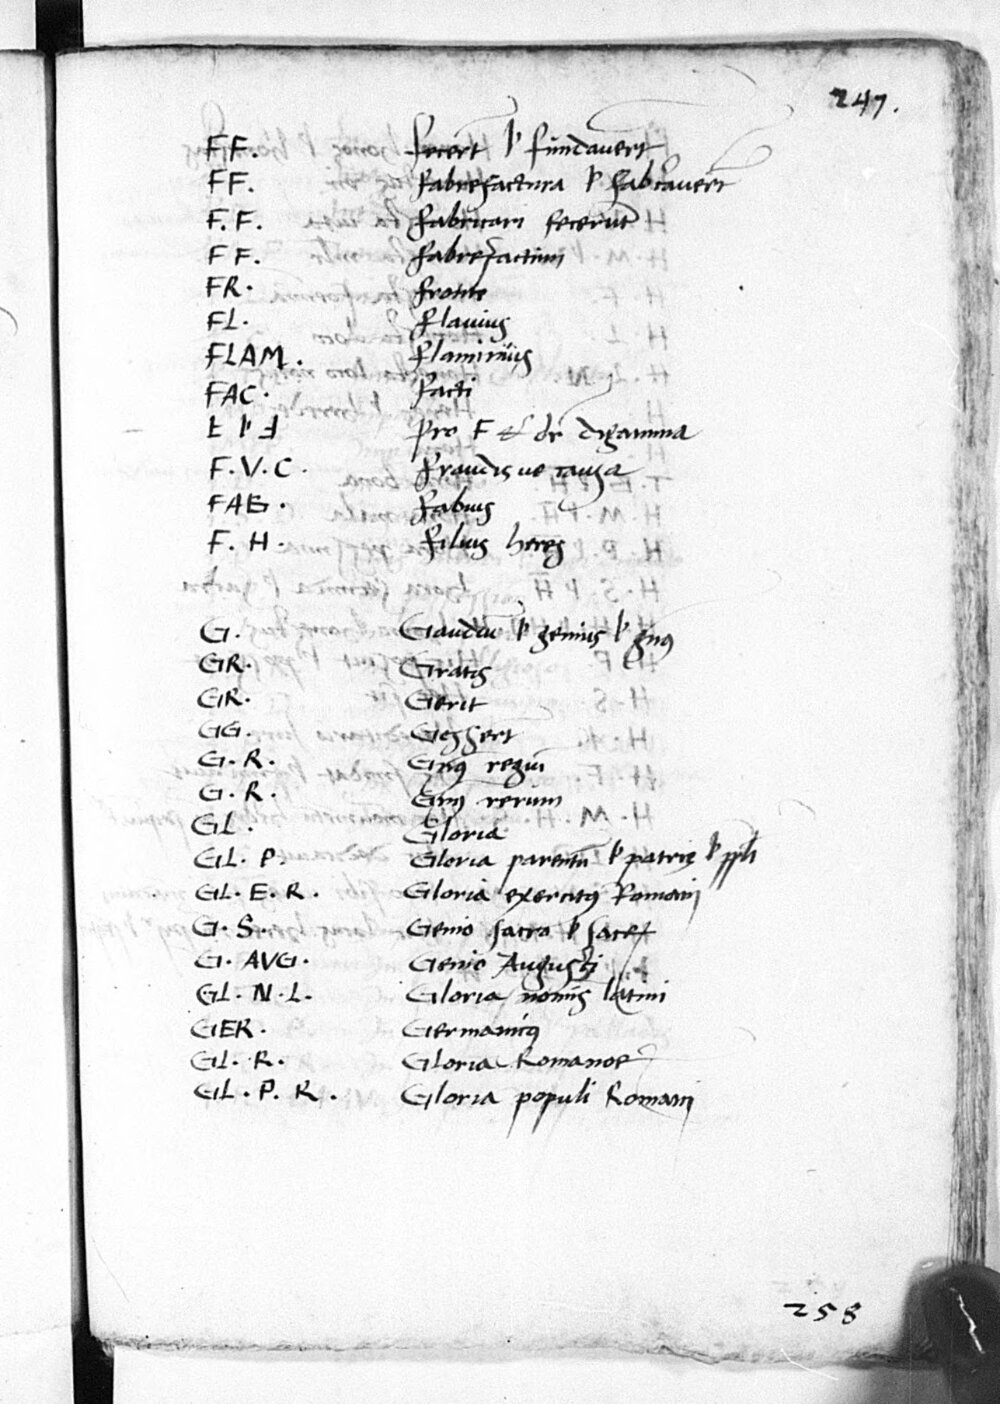 247.
FF. fecert ł fundavert
FF. fabrefactura ł fabricavert
F. F. fabricari fecerut
FF. fabrefactum
FR. fronte
FL. flavius
FLAM. flaminius
FAC. facti
pro F & dr digamma
F. V. C. fraudis ve causa
FAB. fabius
F. H. filius heres
G. Gaudiu ł genius ł
GR. Gratis
GR. Gerit
GG. Gessert
G. R. regui
G. R. rerum
GL. Gloria
GL. P. Gloria parentu ł patrie ł ppli
GL. E. R. Gloria exercitus Romani
G. S. Genio sacro ł
G. AVG. Genio Augusti
GL. N. L. Gloria nomis latini
GER. Germanicus
GL. R. Gloria Romanor
GL. P. R. Gloria populi Romani
258